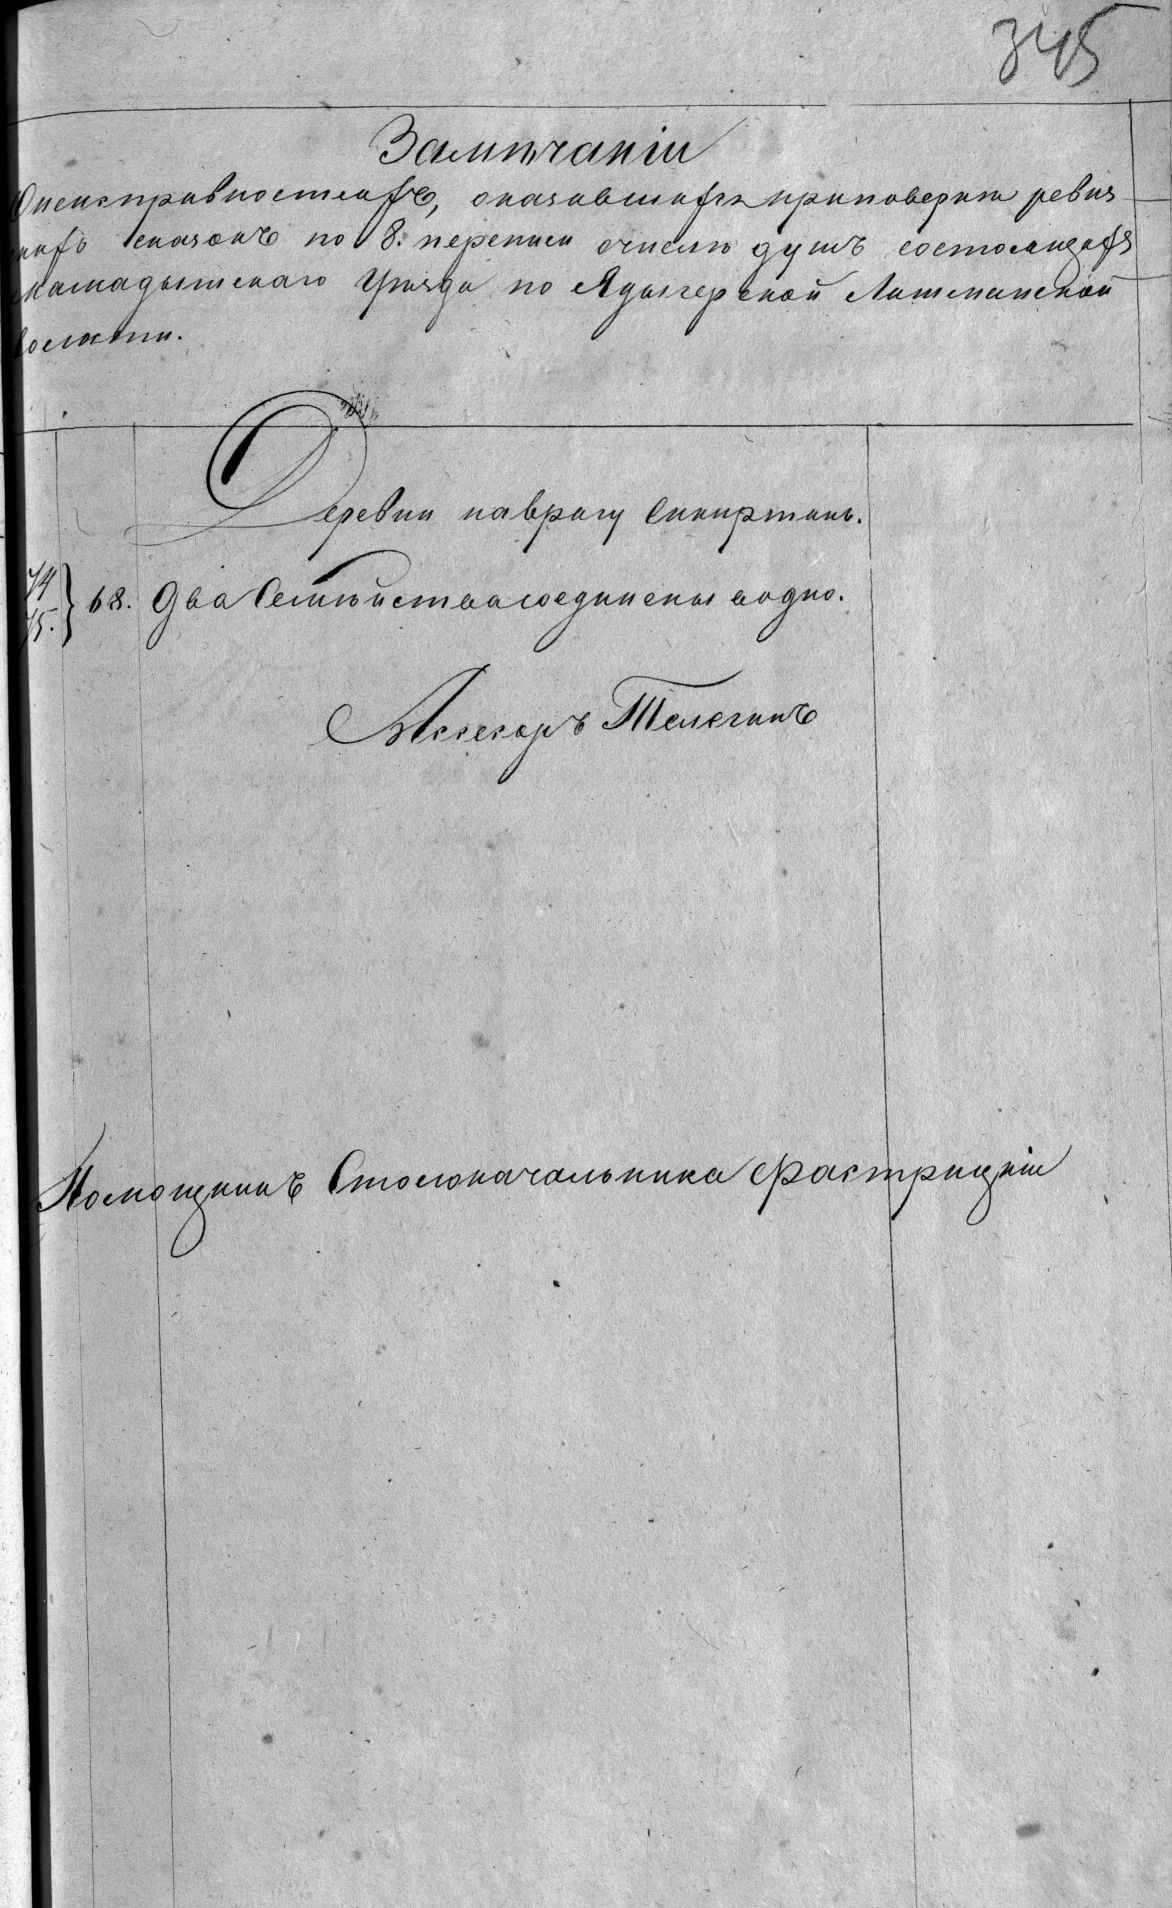 345
Замѣчаніи
Онеисправностяхъ, оказавшихся приповерки ревиз
скихъ сказокъ по 8. переписи очислѣ душъ состоящихъ
мамадышскаго Уѣзда по Ядыгерской Лашманской
волости.
Деревни наврагу Сикиртань.
74
75. } 68. Два Семѣйства соединены водно.
Ассесоръ Телегинъ
Помощникъ Столоначальника